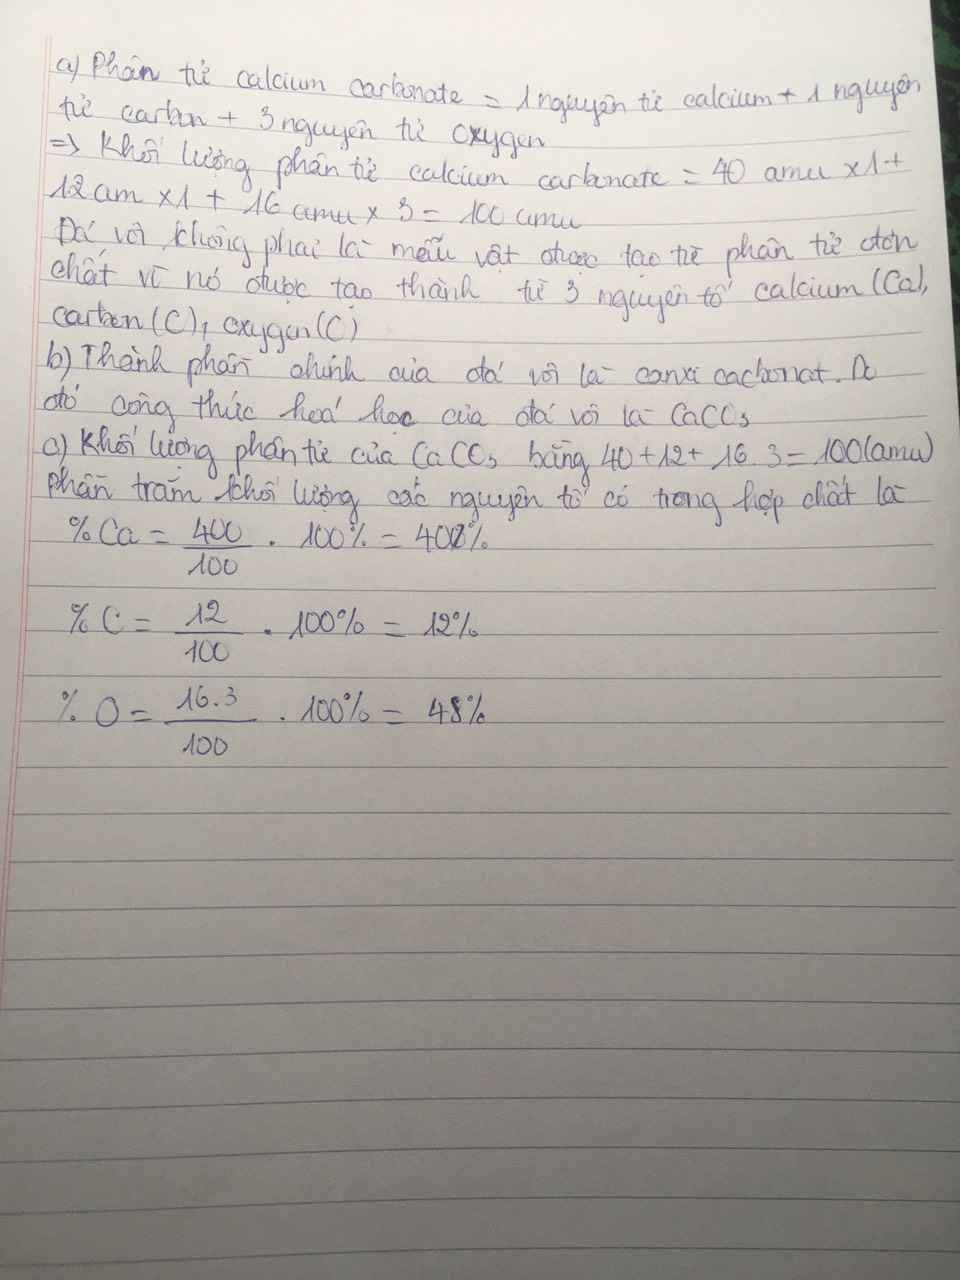 a) Phân tử calcium carbonate = 1 nguyên tử calcium + 1 nguyên
tử carbon + 3 nguyên tử oxygen
=> Khối lượng phân tử calcium carbonate = 40 amu x 1 +
12 am x 1 + 16 amu x 3 = 100 amu
Đá vôi không phải là mẫu vật được tạo từ phân tử đơn
chất vì nó được tạo thành từ 3 nguyên tố calcium (Ca),
carbon (C), oxygen (C)
b) Thành phần chính của đá vôi là canxi cacbonat. Do
đó công thức hoá học của đá vôi là CaCO3
c) Khối lượng phân tử của CaCO3 bằng 40 + 12 + 16 . 3 = 100 (amu)
Phần trăm khối lượng các nguyên tố có trong hợp chất là
% Ca = 400/100 . 100% = 400%
% C = 12/100 . 100% = 12%
% O = 16.3/100 . 100% = 48%